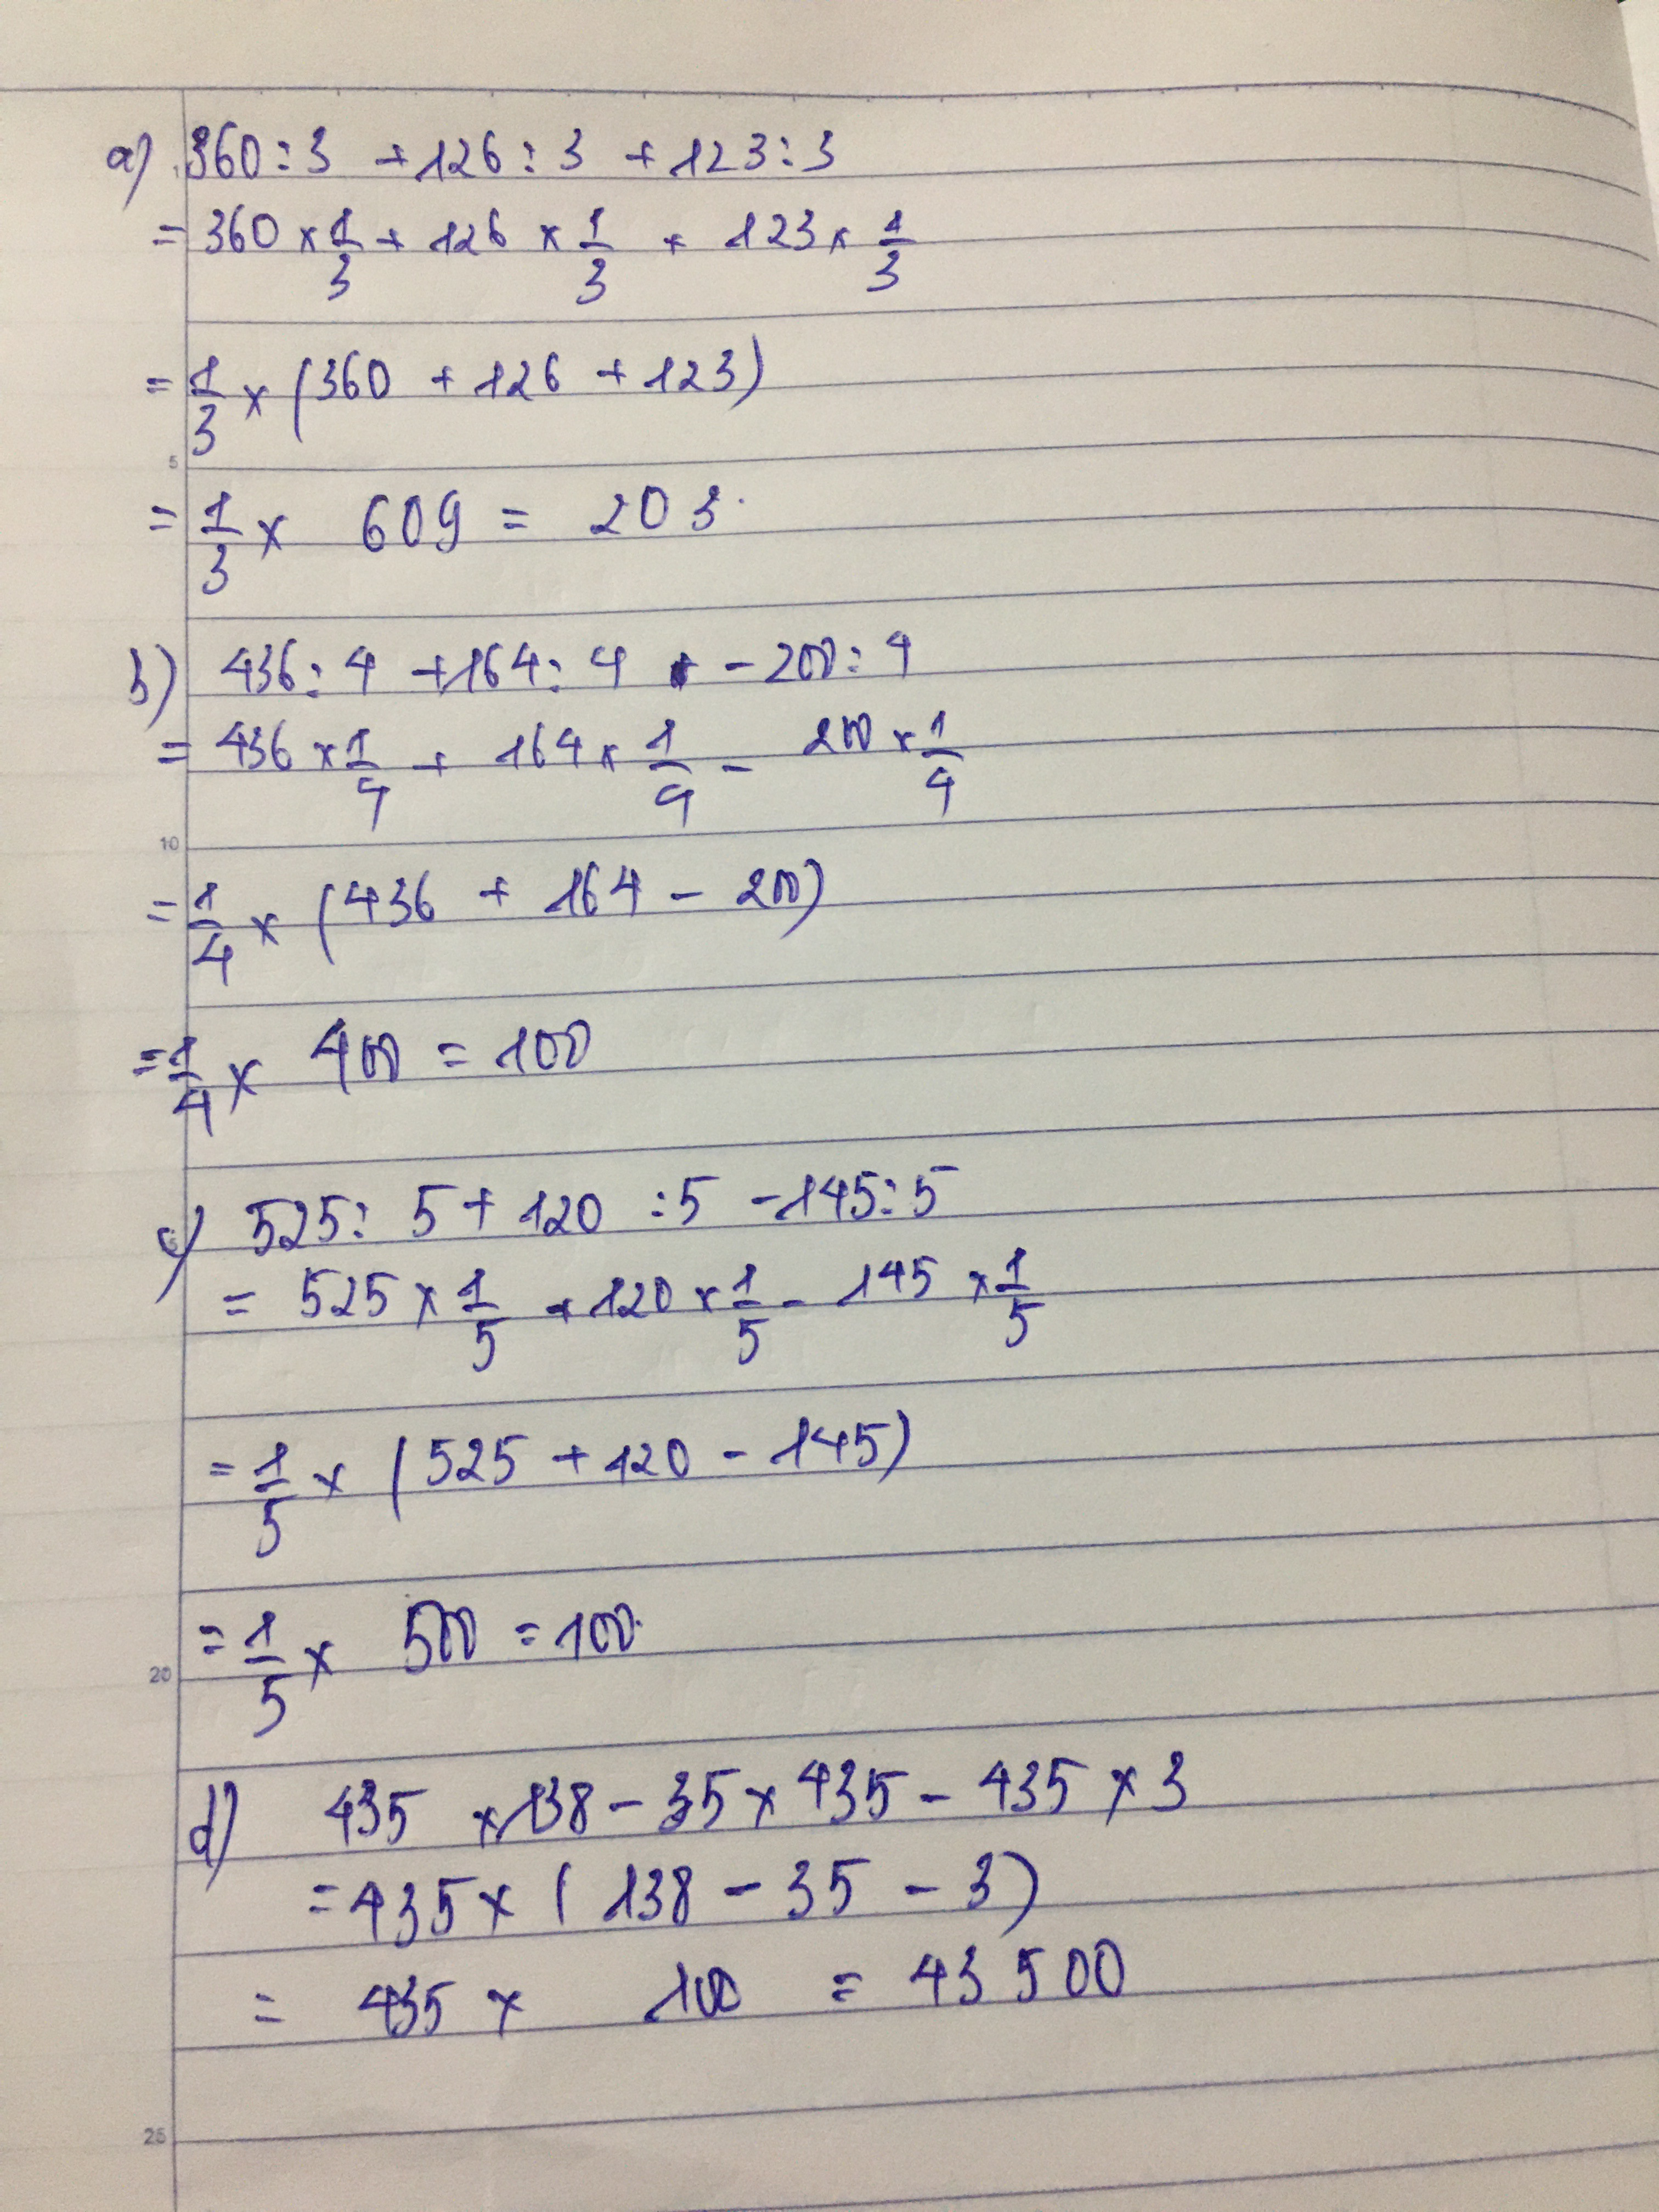 a) 360 : 3 + 126 : 3 + 123 : 3
= 360 × 1/3 + 126 × 1/3 + 123 × 1/3
= 1/3 × (360 + 126 + 123)
5
= 1/3 × 609 = 203.
b) 436 : 4 + 164 : 4 - 200 : 4
= 436 × 1/4 + 164 × 1/4 - 200 × 1/4
10
= 1/4 × (436 + 164 - 200)
= 1/4 × 400 = 100
c) 525 : 5 + 120 : 5 - 145 : 5
= 525 × 1/5 + 120 × 1/5 - 145 × 1/5
= 1/5 × (525 + 120 - 145)
= 1/5 × 500 = 100.
20
d) 435 × 138 - 35 × 435 - 435 × 3
= 435 × (138 - 35 - 3)
= 435 × 100 = 43 500
25